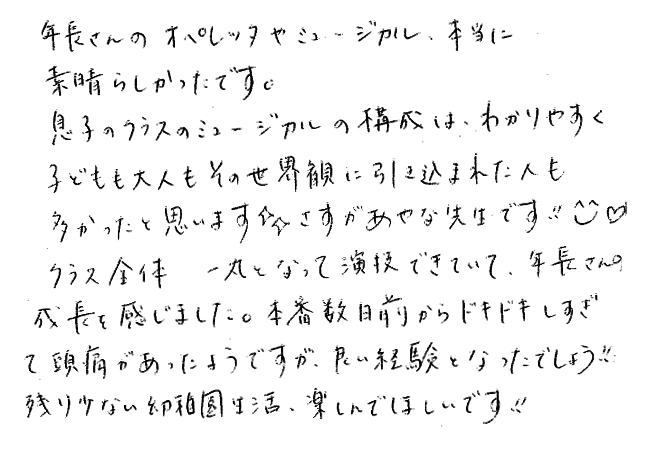 年長さんのオペレッタやミュージカル、本当に
素晴らしかったです。
息子のクラスのミュージカルの構成は、わかりやすく
子どもも大人もその世界観に引き込まれた人も
多かったと思います☆☆さすがあやな先生です!!
クラス全体 一丸となって演技できていて、年長さんの
成長を感じました。本番数日前からドキドキしすぎ
て頭痛があったようですが、良い経験となったでしょう!!
残り少ない幼稚園生活、楽しんでほしいです!!